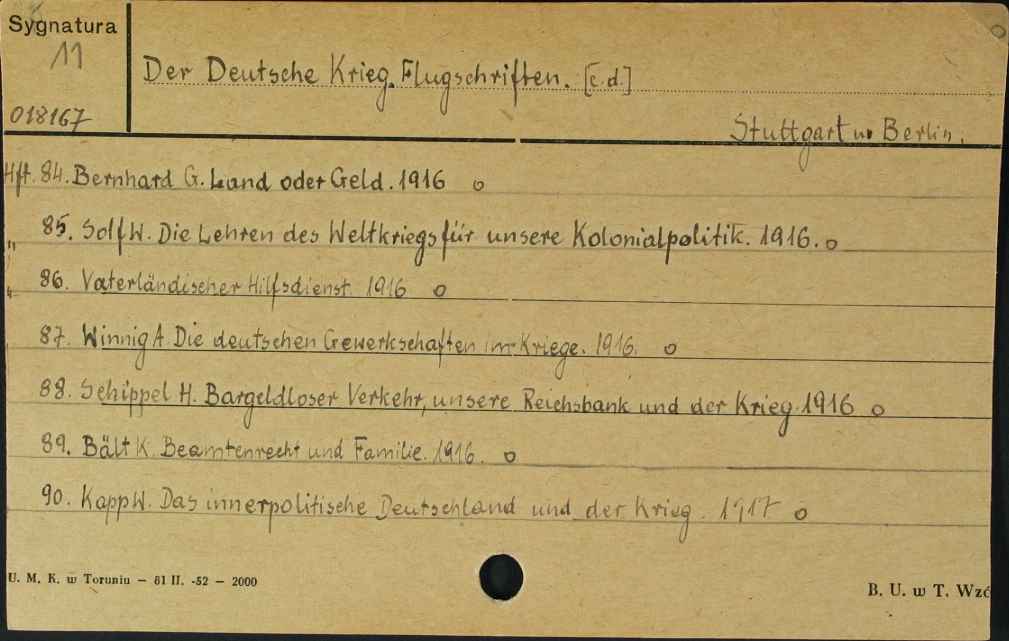 Sygnatura
11
018167
Der Deutsche Krieg. Flugschriften. [c.d.]
Stuttgart u. Berlin.
Hft. 84. Bernhard G. Land oder Geld. 1916 o
" 85. Solf W. Die Lehren des Weltkriegs für unsere Kolonialpolitik. 1916. o
" 86. Vaterländischer Hilfsdienst. 1916 o
87. Winnig A. Die deutschen Gewerkschaften im Kriege. 1916. o
88. Schippel H. Bargeldloser Verkehr, unsere Reichsbank und der Krieg. 1916 o
89. Bält K. Beamtenrecht und Familie. 1916. o
90. Kapp W. Das innerpolitische Deutschland und der Krieg. 1917 o
U. M. K. w Toruniu — 81 II. -52 — 2000
B. U. w T. Wzó